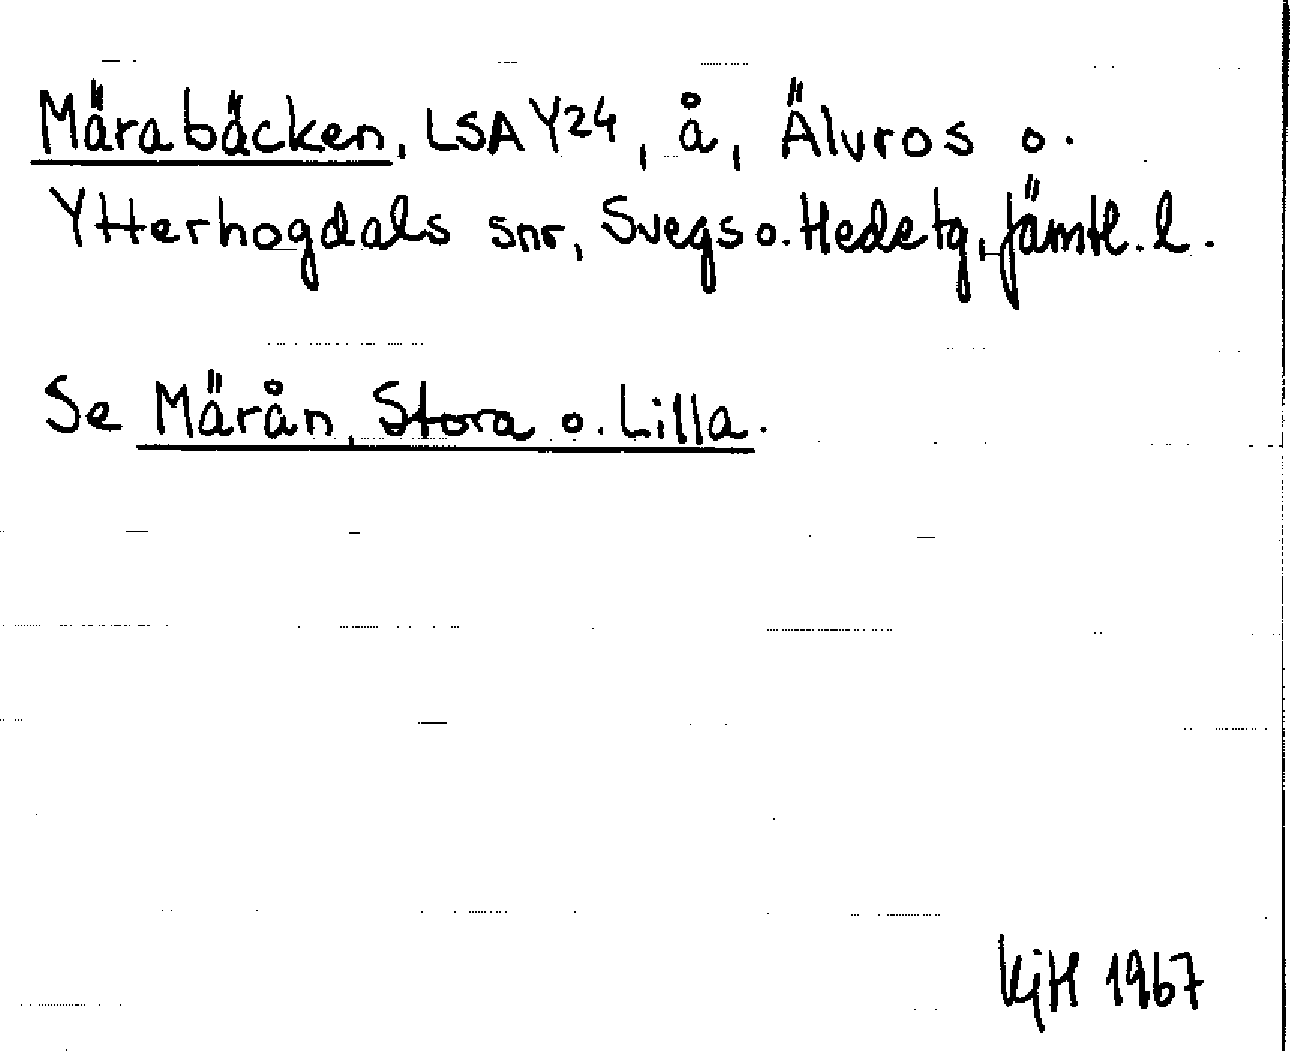 Märabäcken, LSA Y24, å, Älvros o.
Ytterhogdals snr, Svegs o. Hede tg, Jämtl. l.
Se Märån, Stora o. Lilla.
KjH 1967